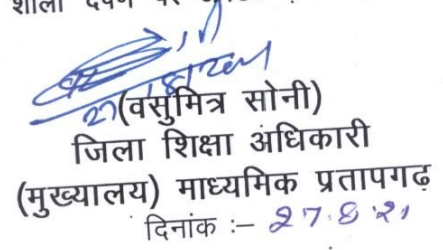 शाला दर्पण पर
(वसुमित्र सोनी)
जिला शिक्षा अधिकारी
(मुख्यालय) माध्यमिक प्रतापगढ़
दिनांक :– 27.8.21